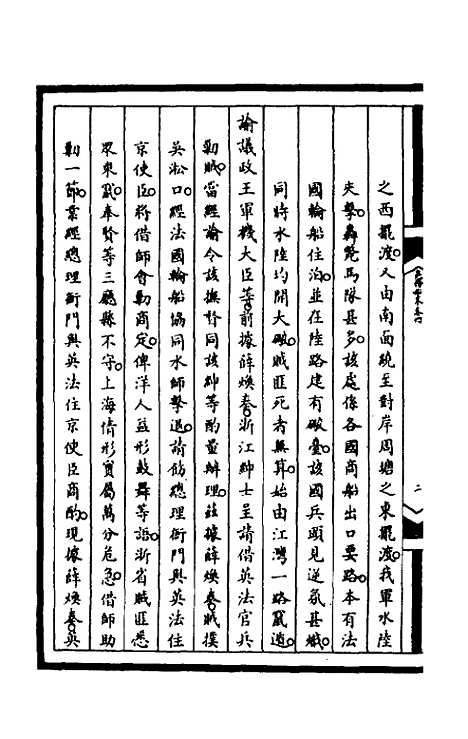 之西罷渡又由南面繞至對岸周塘之東罷渡我軍水陸
夾擊轟斃馬隊甚多該處係各國商船出口要路本有法
國輪船住泊並在陸路建有破臺該國兵頭見逆氛甚熾
同時水陸均開大破賊匪死者無算始由江灣一路竄遁
諭議政王軍機大臣等前據薛煥奏浙江紳士至請借英法官兵
勦賊當經諭令該撫督同該紳等酌量辦理茲據薛煥奏賊撲
吳淞口經法國輪船協同水師擊退請飭總理衙門與英法住
京使臣將借師會勦商定俾洋人益形鼓舞等語浙省賊匪悉
眾東竄奉賢等三廳縣不守上海情形實屬萬分危急借師助
勦一節業經總理衙門與英法住京使臣商酌現據薛煥奏英
二